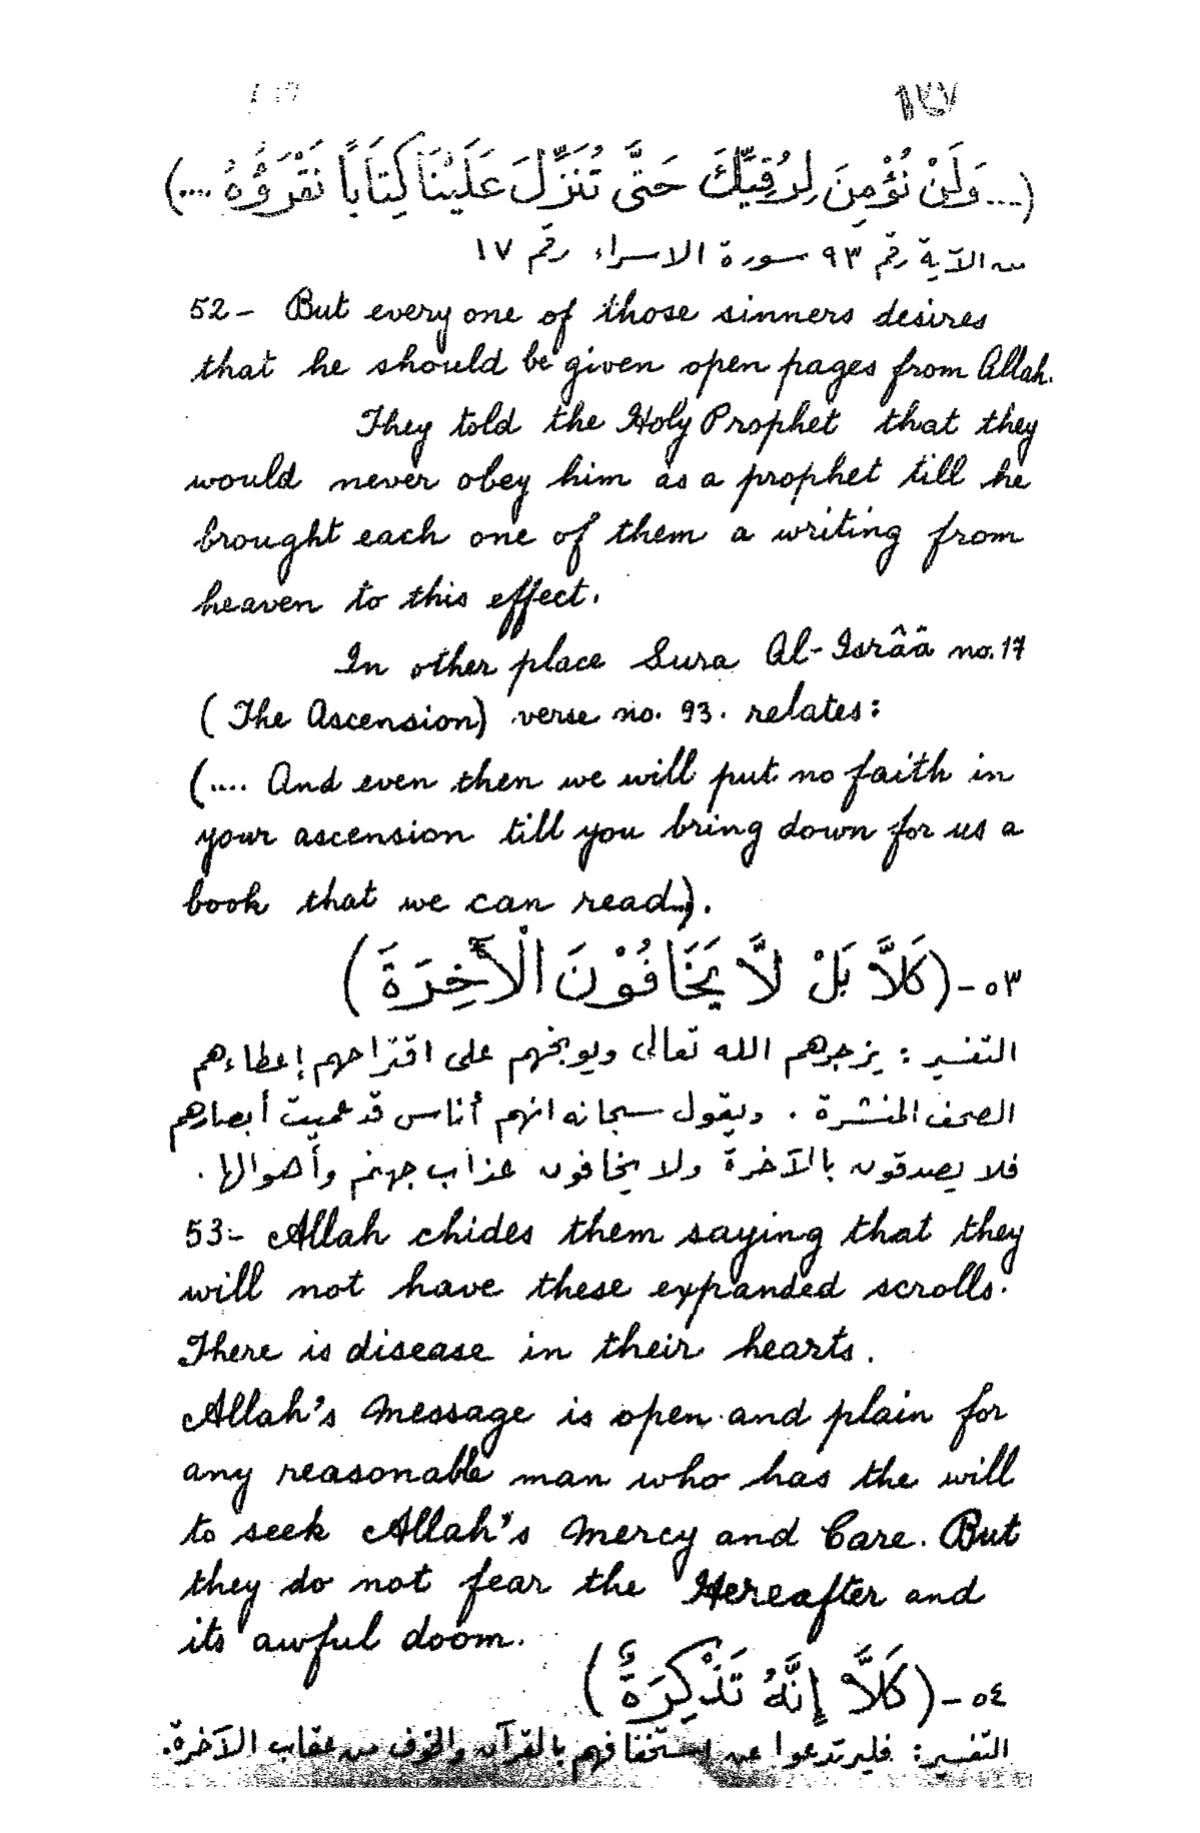 ١٢٧
(....وَلَنْ نُؤْمِنَ لِرُقِيِّكَ حَتَّى تُنَزِّلَ عَلَيْنَا كِتَابًا نَقْرَؤُهُ ....)
من الآية رقم ٩٣ سورة الاسراء رقم ١٧
52- But every one of those sinners desires
that he should be given open pages from Allah.
They told the Holy Prophet that they
would never obey him as a prophet till he
brought each one of them a writing from
heaven to this effect.
In other place Sura Al-Isrâä no.17
(The Ascension) verse no. 93. relates:
(.... And even then we will put no faith in
your ascension till you bring down for us a
book that we can read..).
٥٣-(كَلَّا بَلْ لَّا يَخَافُوْنَ الْأَخِرَةَ)
التفسير: يزجرهم الله تعالى ويوبخهم على اقتراحهم إعطاءهم
الصحف المنشرة . ويقول سبحانه انهم أناس قد عميت أبصارهم
فلا يصدقون بالآخرة ولا يخافون عذاب جهنم وأهوالها .
53:- Allah chides them saying that they
will not have these expanded scrolls.
There is disease in their hearts.
Allah's Message is open and plain for
any reasonable man who has the will
to seek Allah's Mercy and Care. But
they do not fear the Hereafter and
its awful doom.
٥٤-(كَلَّا إِنَّهُ تَذْكِرَةٌ)
التفسير: فليرتدعوا عن استخفافهم بالقرآن والخوف من عقاب الآخرة.